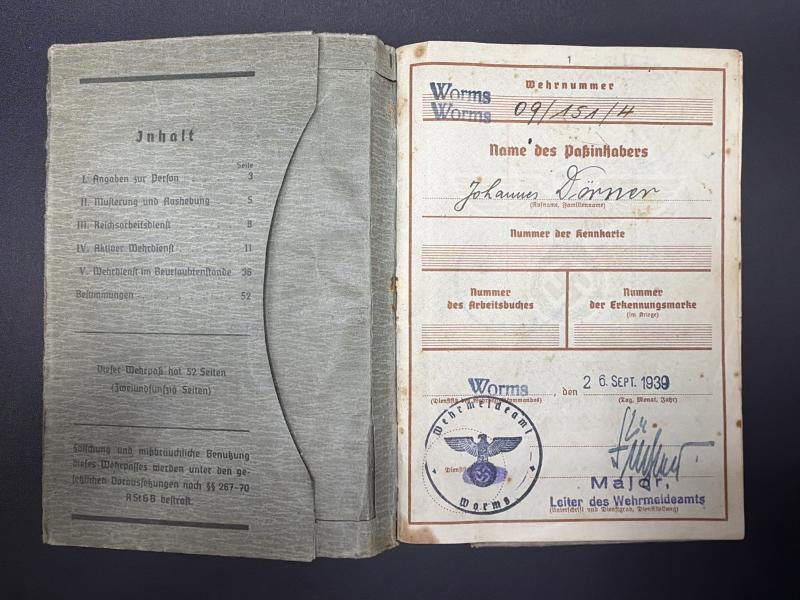 Inhalt
Seite
I. Angaben zur Person . 3
II. Musterung und Aushebung . 5
III. Reichsarbeitsdienst . . 8
IV. Aktiver Wehrdienst . . 11
V. Wehrdienst im Beurlaubtenstande 36
Bestimmungen . . . . 52
Dieser Wehrpaß hat 52 Seiten
(Zweiundfünfzig Seiten)
Fälschung und mißbräuchliche Benutzung
dieses Wehrpasses werden unter den ge-
setzlichen Voraussetzungen nach §§ 267-70
RStGB bestraft.
1
Wehrnummer
Worms
Worms 09/151/4
Name des Paßinhabers
Johannes Dörner
(Rufname, Familienname)
Nummer der Kennkarte
Nummer
des Arbeitsbuches
Nummer
der Erkennungsmarke
(im Kriege)
Worms, den 26. SEPT. 1939
(Tag, Monat, Jahr)
Wehrmeldeamt
Worms
Major,
Leiter des Wehrmeldeamts
(Unterschrift und Dienstgrad, Dienststellung)